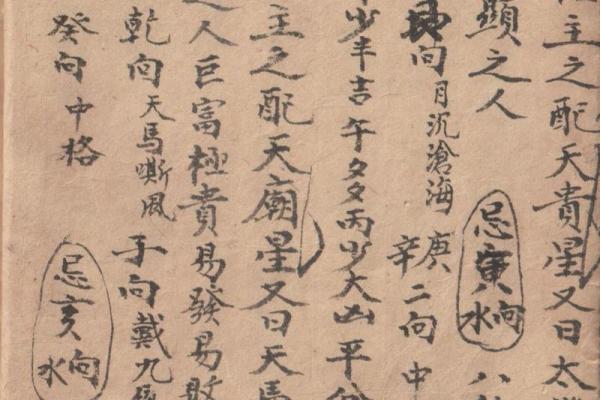 主之配天貴星又曰太
顯之人 忌寅向水 八
艮向月沉滄海 庚辛二向中
少丰吉午多丙少大凶平
主之配天廟星又曰天馬
之人巨富極貴易發易敗
乾向天馬嘶風 子向戴九
癸向中格 忌亥向水